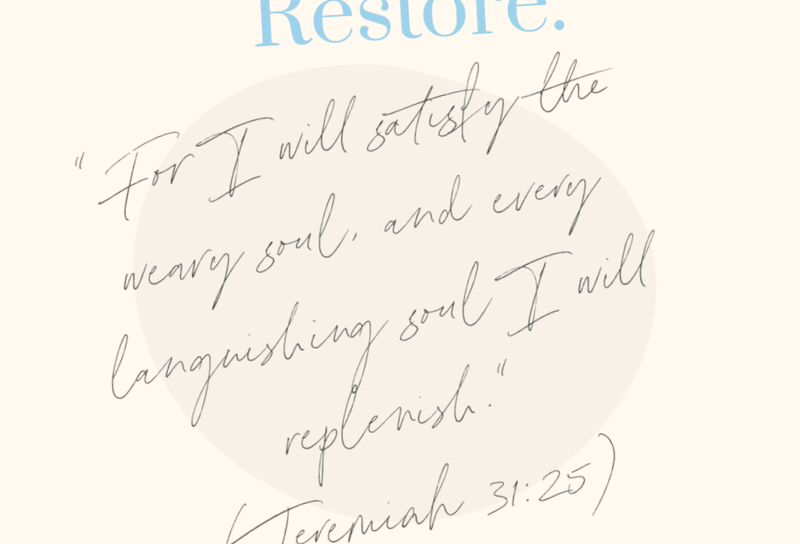 Restore.
"For I will satisfy the
weary soul, and every
languishing soul I will
replenish."
(Jeremiah 31:25)